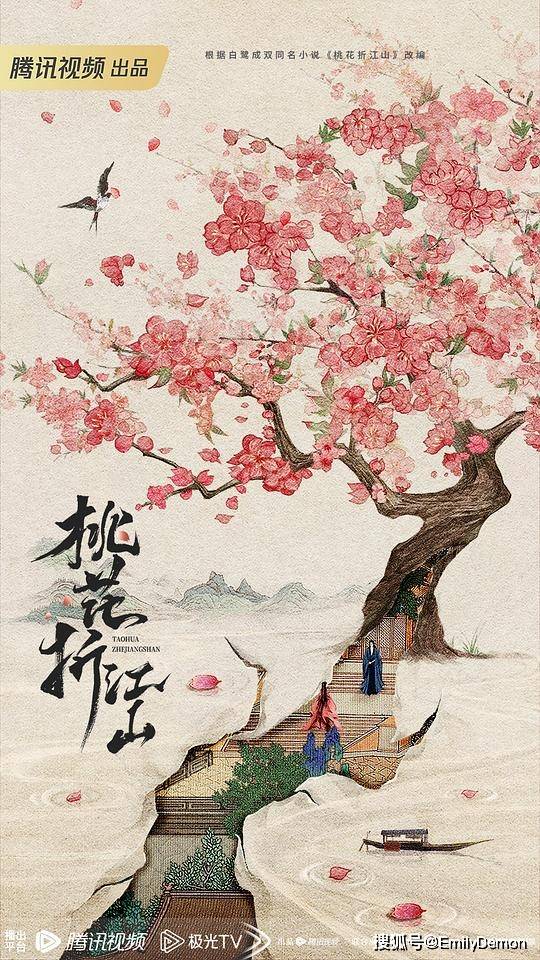 腾讯视频 出品
根据白鹭成双同名小说《桃花折江山》改编
桃花折江山
TAOHUA
ZHEJIANGSHAN
播出
平台
腾讯视频 极光TV
出品
搜狐号@EmilyDemon